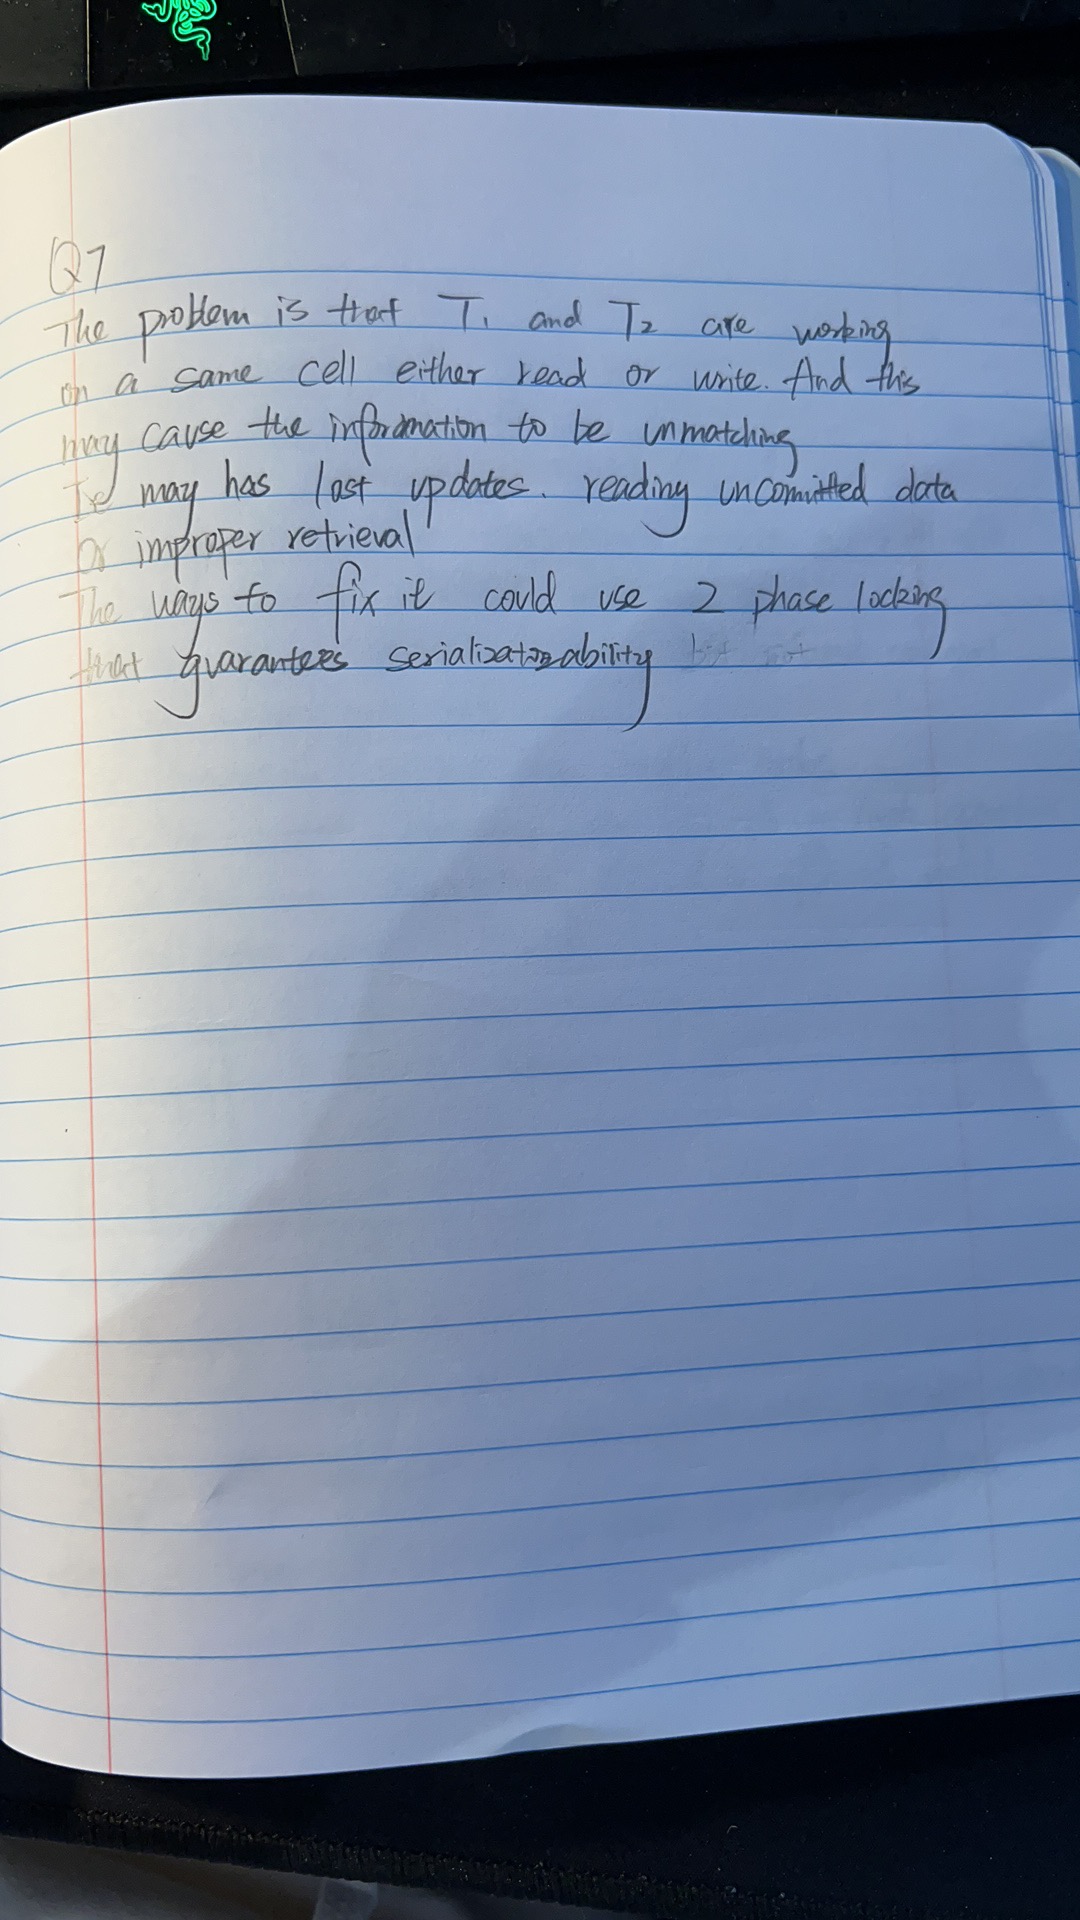 Q7
The problem is that T1 and T2 are working
on a same cell either read or write. And this
may cause the information to be unmatching
may has lost updates. reading uncommitted data
or improper retrieval
The ways to fix it could use 2 phase locking
that guarantees serializability